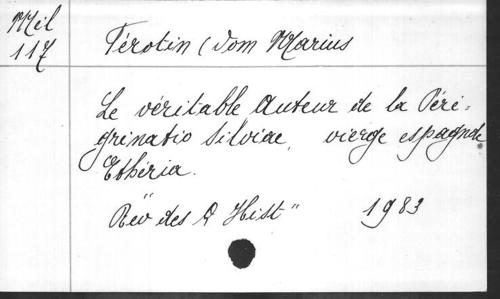 Mil
117
Férotin (Dom Marius
Le véritable Auteur de la Péri-
grinatio Silviae, vierge espagnole
Ethéria.
"Rev des Q Hist" 1983